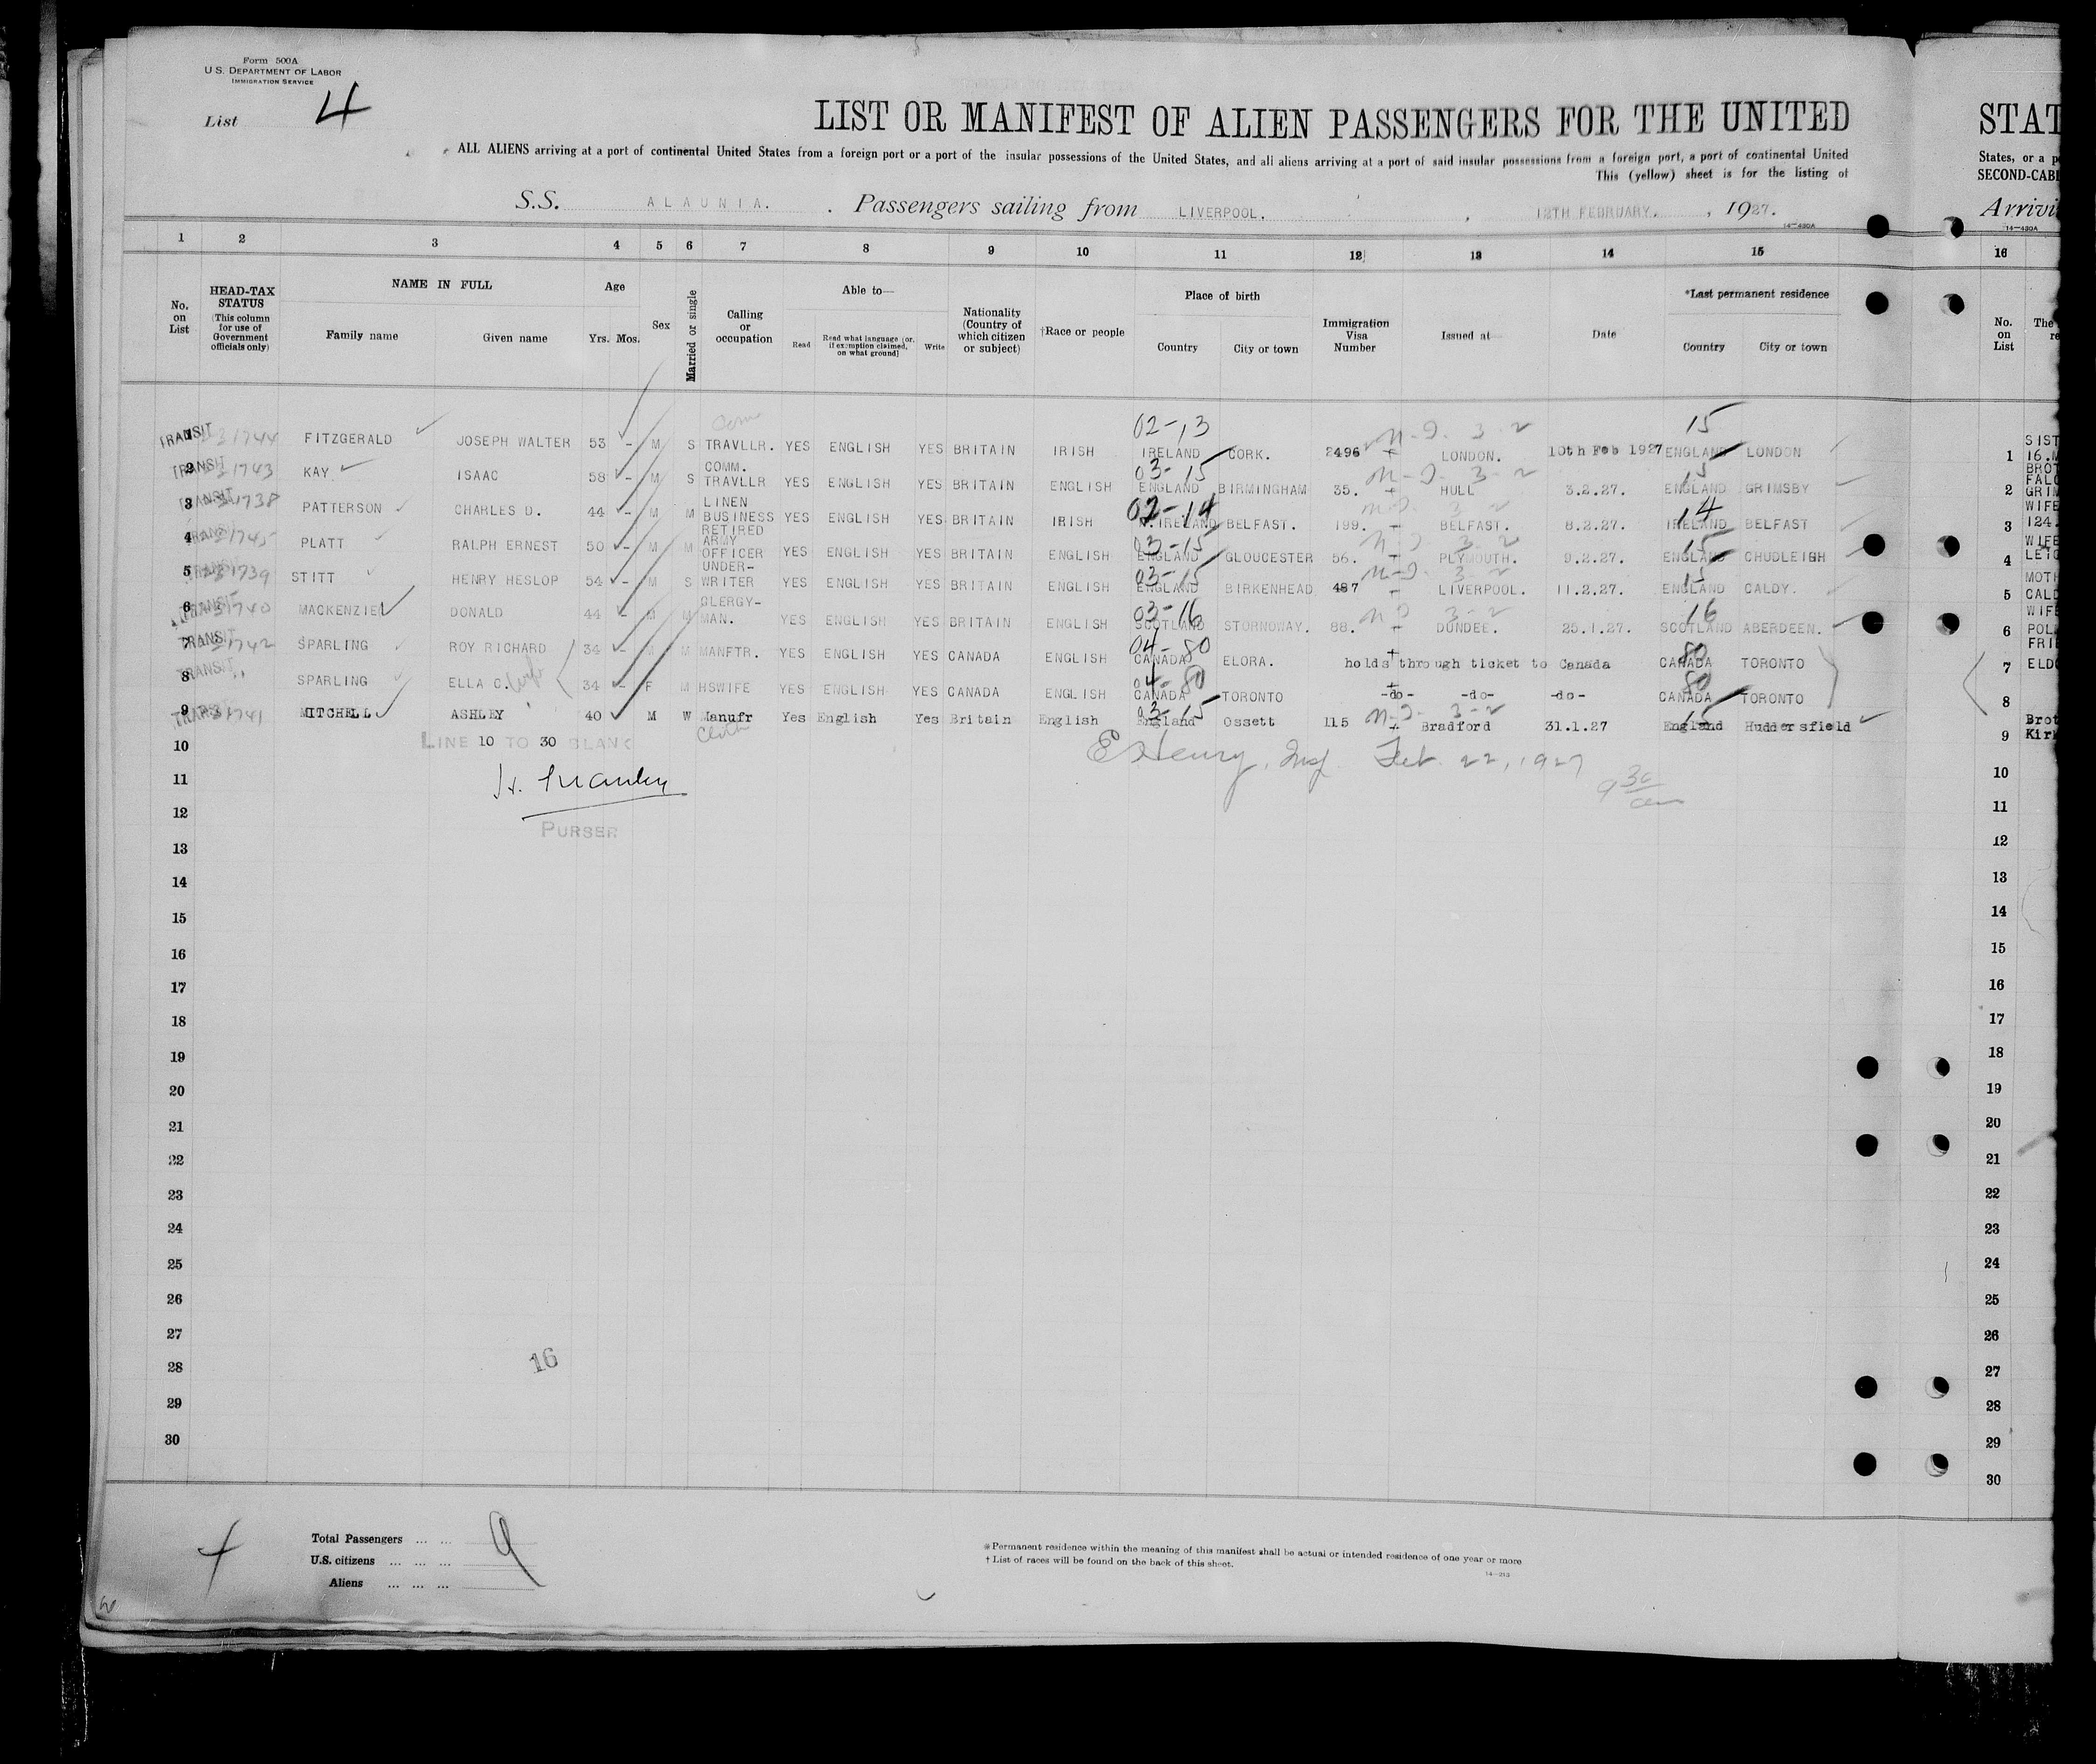 Form 500A
U.S. DEPARTMENT OF LABOR
IMMIGRATION SERVICE
List 4
LIST OR MANIFEST OF ALIEN PASSENGERS FOR THE UNITED
ALL ALIENS arriving at a port of continental United States from a foreign port or a port of the insular possessions of the United States, and all aliens arriving at a port of said insular possessions from a foreign port, a port of continental United
This (yellow) sheet is for the listing of
S.S. ALAUNIA. Passengers sailing from LIVERPOOL. , 12TH FEBRUARY. , 1927.
14-430A
1 2 3 4 5 6 7 8 9 10 11 12 13 14 15
No. on List
HEAD-TAX STATUS (This column for use of Government officials only)
NAME IN FULL
Family name Given name
Age Yrs. Mos.
Sex
Married or single
Calling or occupation
Able to—
Read Read what language [or, if exemption claimed, on what ground] Write
Nationality (Country of which citizen or subject)
†Race or people
Place of birth
Country City or town
Immigration Visa Number
Issued at—
Date
*Last permanent residence
Country City or town
02-13 3-2 15
1 TRANSIT 31744 FITZGERALD JOSEPH WALTER 53 - M S TRAVLLR. YES ENGLISH YES BRITAIN IRISH IRELAND CORK. 2496 LONDON. 10th Feb 1927 ENGLAND LONDON
03-15 3-2 15
2 TRANSIT 31743 KAY ISAAC 58 - M S COMM. TRAVLLR YES ENGLISH YES BRITAIN ENGLISH ENGLAND BIRMINGHAM 35. HULL 3.2.27. ENGLAND GRIMSBY
02-14 3-2 14
3 TRANSIT 31738 PATTERSON CHARLES D. 44 - M M LINEN BUSINESS YES ENGLISH YES BRITAIN IRISH N.IRELAND BELFAST. 199. BELFAST. 8.2.27. IRELAND BELFAST
03-15 3-2 15
4 TRANSIT 31745 PLATT RALPH ERNEST 50 - M M RETIRED ARMY OFFICER YES ENGLISH YES BRITAIN ENGLISH ENGLAND GLOUCESTER 56. PLYMOUTH. 9.2.27. ENGLAND CHUDLEIGH
03-15 3-2 15
5 TRANSIT 31739 STITT HENRY HESLOP 54 - M S UNDER-WRITER YES ENGLISH YES BRITAIN ENGLISH ENGLAND BIRKENHEAD 487 LIVERPOOL. 11.2.27. ENGLAND CALDY.
03-16 3-2 16
6 TRANSIT 31740 MACKENZIE DONALD 44 - M M CLERGY-MAN. YES ENGLISH YES BRITAIN ENGLISH SCOTLAND STORNOWAY. 88. DUNDEE. 25.1.27. SCOTLAND ABERDEEN.
04-80 80
7 TRANSIT 31742 SPARLING ROY RICHARD 34 - M M MANFTR. YES ENGLISH YES CANADA ENGLISH CANADA ELORA. holds through ticket to Canada CANADA TORONTO
04-80 80
8 TRANSIT SPARLING ELLA C. wife 34 - F M HSWIFE YES ENGLISH YES CANADA ENGLISH CANADA TORONTO -do- -do- -do- CANADA TORONTO
03-15 3-2 15
9 TRANSIT 31741 MITCHELL ASHLEY 40 M W Manufr Cloth Yes English Yes Britain English England Ossett 115 Bradford 31.1.27 England Huddersfield
10 LINE 10 TO 30 BLANK
E Henry, Insp. Feb. 22, 1927
9 30 am
11
H. Manley
12
PURSER
13
14
15
16
17
18
19
20
21
22
23
24
25
26
27
28
16
29
30
Total Passengers ... ... 9
U.S. citizens ... ... ...
Aliens ... ... ...
*Permanent residence within the meaning of this manifest shall be actual or intended residence of one year or more
†List of races will be found on the back of this sheet.
14-213
STAT
States, or a p
SECOND-CABI
Arrivi
14-430A
16
No. on List
The
re
1 SIST
16.M
BROT
2 FALC
GRIM
WIFE
3 124.
WIFE
4 LEIG
MOTH
5 CALD
WIFE
6 POL
FRI
7 ELDO
8
Brot
9 Kirk
10
11
12
13
14
15
16
17
18
19
20
21
22
23
24
25
26
27
28
29
30